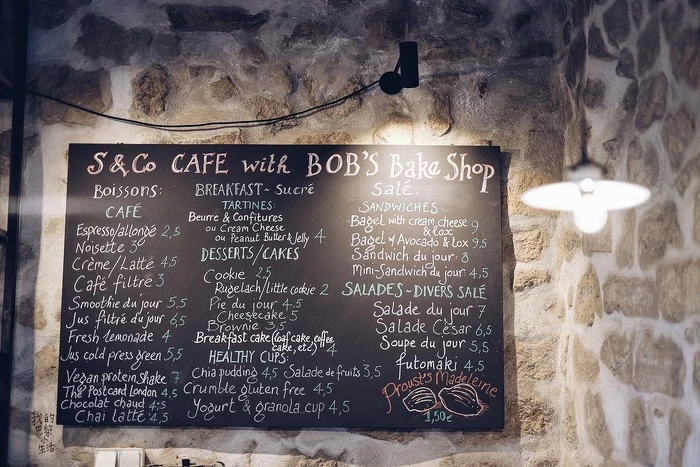 S & Co CAFE with BOB'S Bake Shop
Boissons:
CAFÉ
Espresso/allongé 2,5
Noisette 3
Crème/Latte 4,5
Café filtre 3
Smoothie du jour 5,5
Jus filtré du jour 6,5
Fresh lemonade 4
Jus cold press green 5,5
Vegan protein Shake 7
The Postcard London 4,5
Chocolat chaud 4,5
Chai latte 4,5
BREAKFAST ~ Sucré
TARTINES:
Beurre & Confitures
ou Cream Cheese
ou Peanut Butter & Jelly 4
DESSERTS/CAKES
Cookie 2,5
Rugelach/Little cookie 2
Pie du jour 4,5
Cheesecake 5
Brownie 3,5
Breakfast cake (loaf cake, coffee
cake, etc) 4
HEALTHY CUPS:
Chia pudding 4,5 Salade de fruits 3,5
Crumble gluten free 4,5
Yogurt & granola cup 4,5
Salé:
SANDWICHES:
Bagel with cream cheese
& lox 9
Bagel y Avocado & Lox 9,5
Sandwich du jour: 8
Mini-Sandwich du jour 4,5
SALADES ~ DIVERS SALÉ
Salade du jour 7
Salade César 6,5
Soupe du jour 5,5
futomaki 4,5
Proust's Madeleine
1,50€